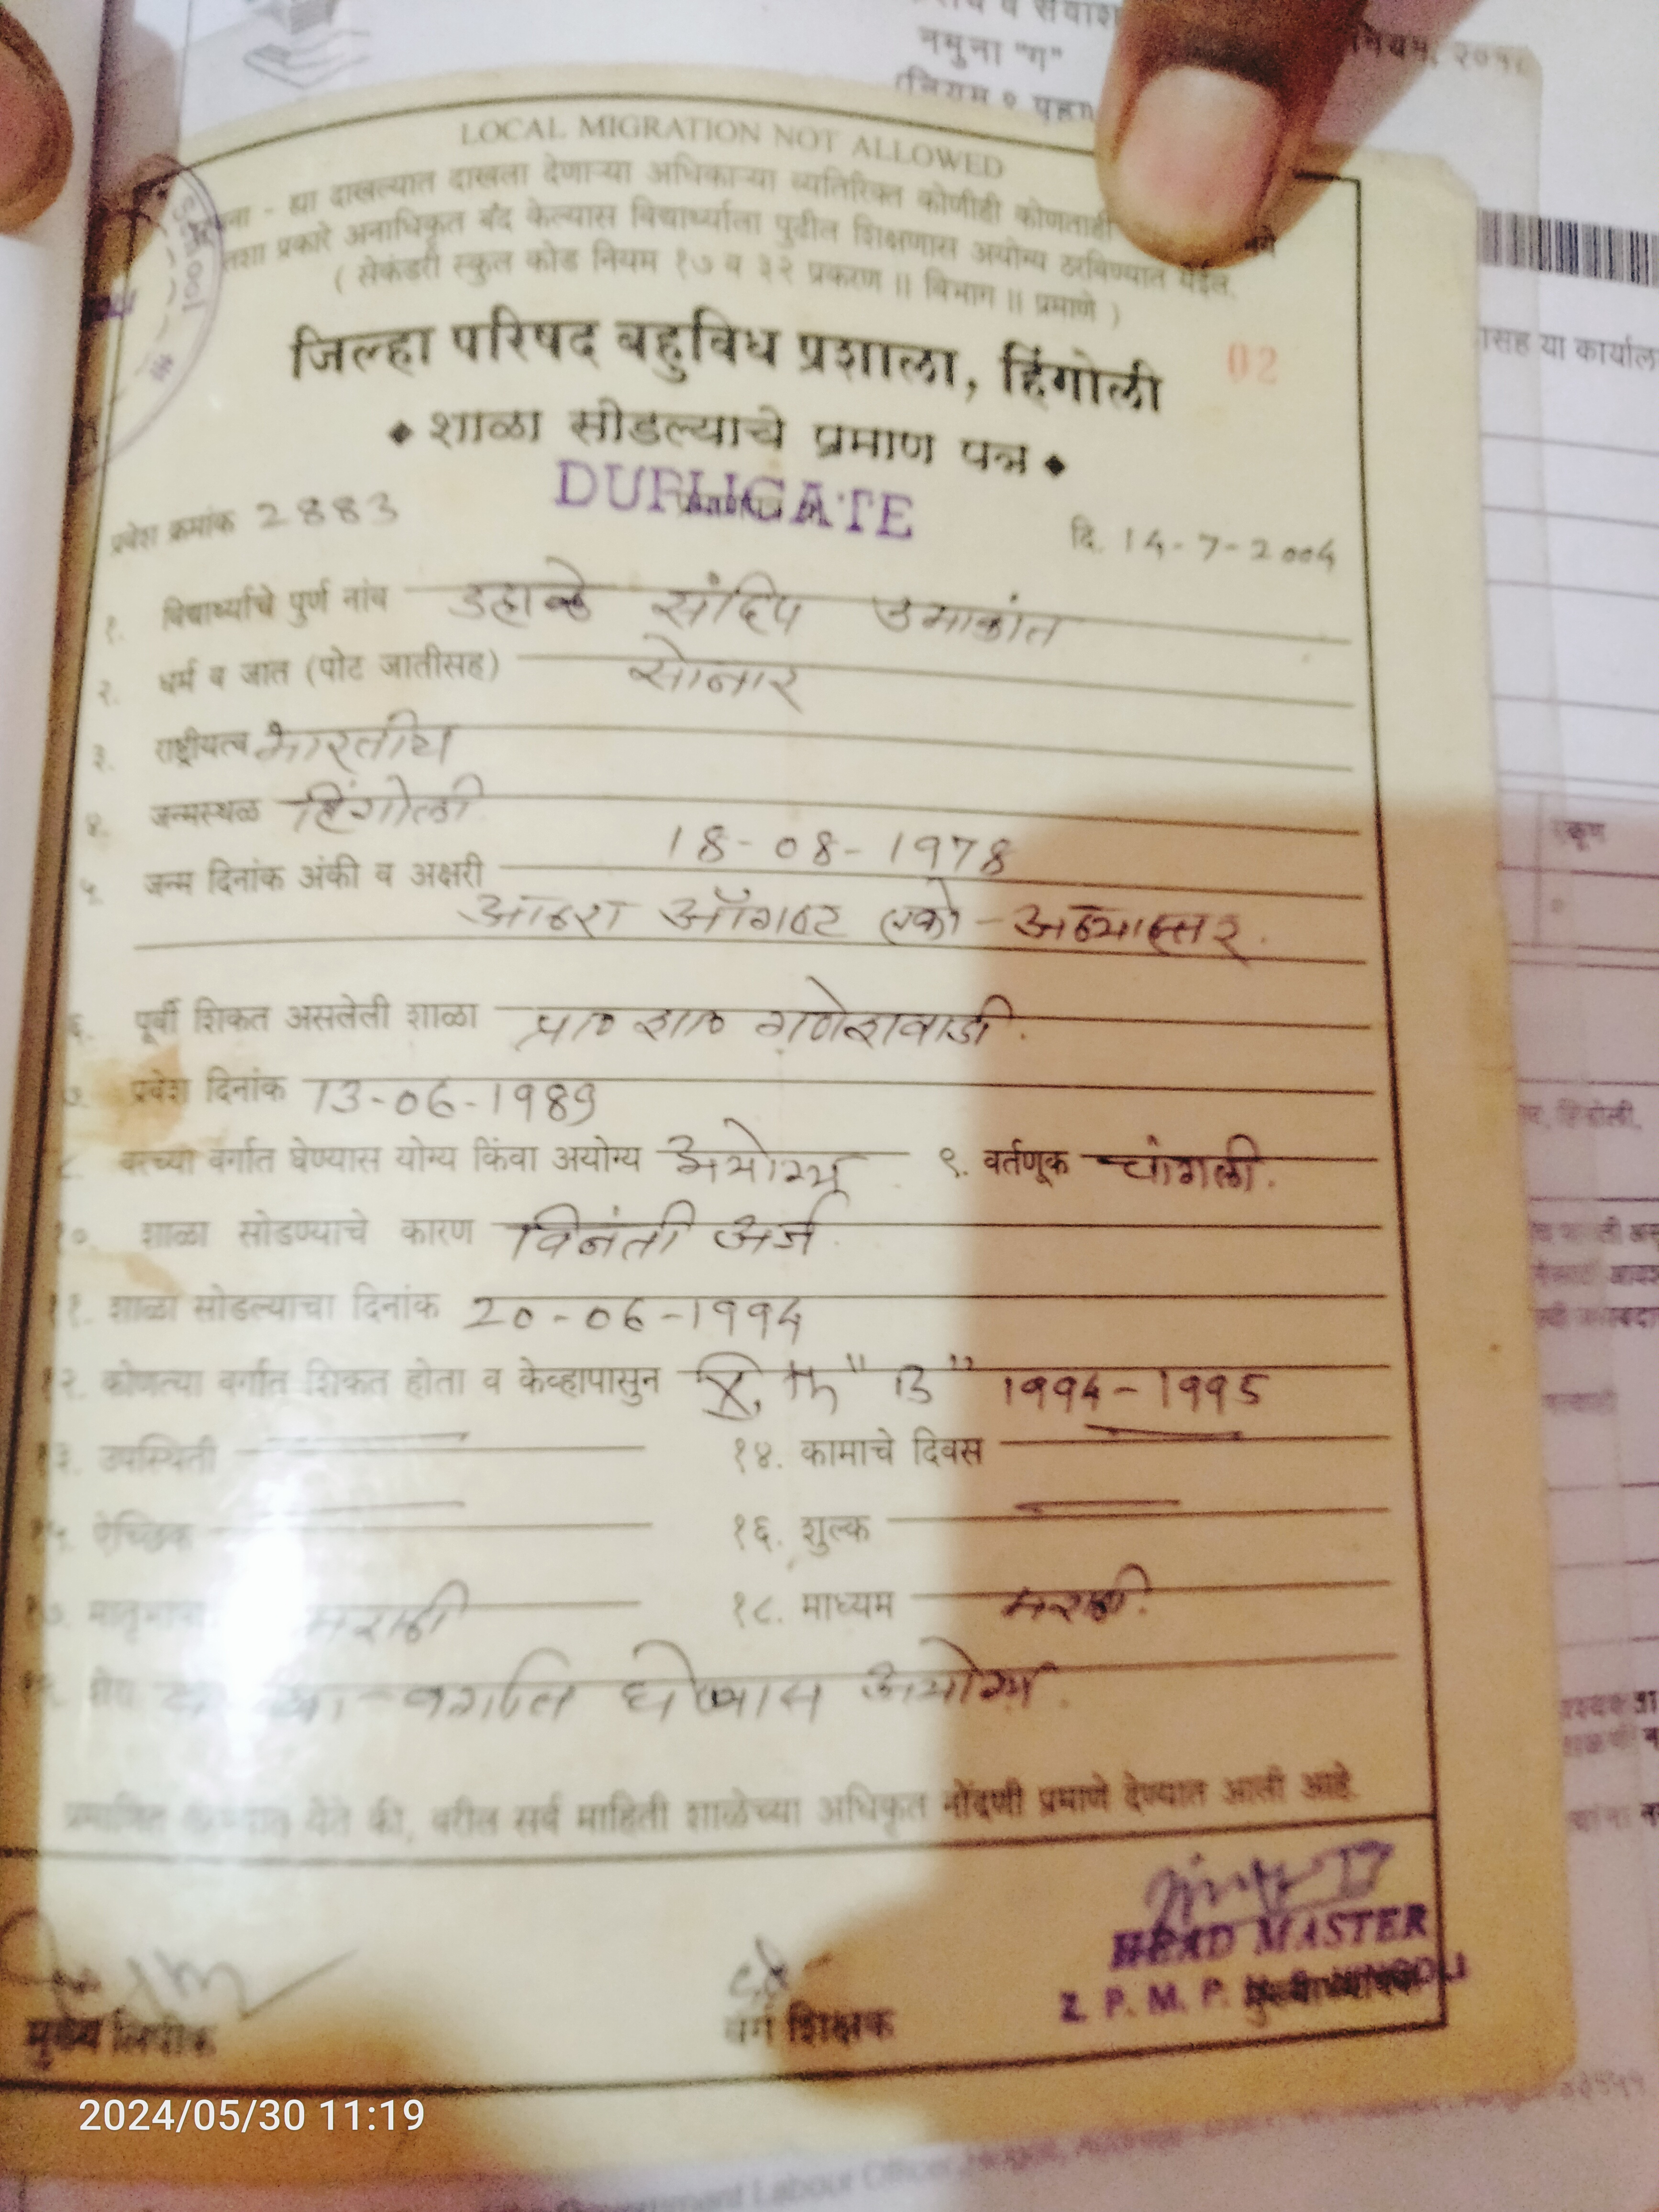 नमुना "ग"
LOCAL MIGRATION NOT ALLOWED
ह्या दाखल्यात दाखला देणाऱ्या अधिकाऱ्या व्यतिरिक्त कोणीही कोणताही
तशा प्रकारे अनाधिकृत बंद केल्यास विद्यार्थ्याला पुढील शिक्षणास अयोग्य ठरविण्यात येईल.
( सेकंडरी स्कुल कोड नियम १७ व ३२ प्रकरण ॥ विभाग ॥ प्रमाणे )
जिल्हा परिषद बहुविध प्रशाला, हिंगोली 02
◆ शाळा सोडल्याचे प्रमाण पत्र ◆
DUPLICATE
प्रवेश क्रमांक 2883 दि. 14-7-2004
१. विद्यार्थ्याचे पुर्ण नांव डहाळे संदिप उमाकांत
२. धर्म व जात (पोट जातीसह) सोनार
३. राष्ट्रीयत्व भारतीय
४. जन्मस्थळ हिंगोली
५. जन्म दिनांक अंकी व अक्षरी 18-08-1978
अठरा ऑगस्ट एको-अठ्याहत्तर.
६. पूर्वी शिकत असलेली शाळा प्रा० शा० गणेशवाडी.
७. प्रवेश दिनांक 13-06-1989
८. वरच्या वर्गात घेण्यास योग्य किंवा अयोग्य अयोग्य ९. वर्तणूक चांगली.
१०. शाळा सोडण्याचे कारण विनंती अर्ज.
११. शाळा सोडल्याचा दिनांक 20-06-1994
१२. कोणत्या वर्गात शिकत होता व केव्हापासुन "B" 1994-1995
१३. उपस्थिती १४. कामाचे दिवस
१५. ऐच्छिक १६. शुल्क
१७. मातृभाषा मराठी १८. माध्यम मराठी.
वर्गात घेण्यास अयोग्य.
प्रमाणित येते की, वरील सर्व माहिती शाळेच्या अधिकृत नोंदणी प्रमाणे देण्यात आली आहे.
HEAD MASTER
Z. P. M. P. H. S. HINGOLI
मुख्य लिपीक वर्ग शिक्षक मुख्याध्यापक
2024/05/30 11:19